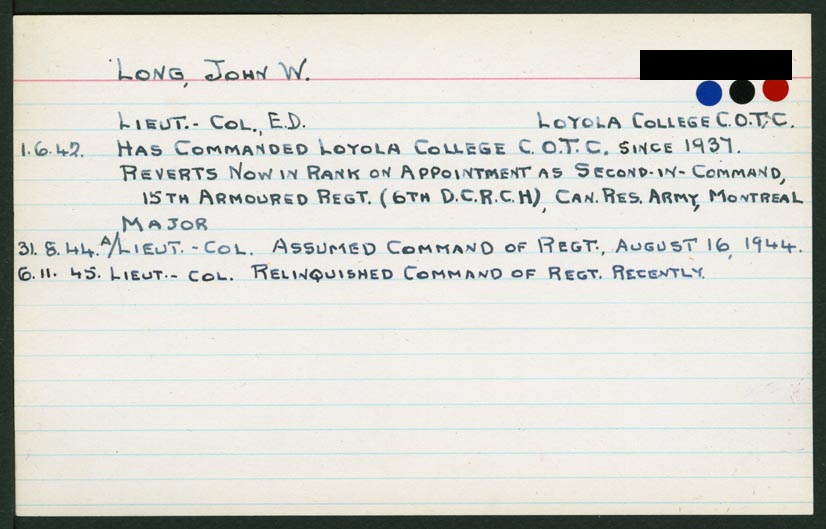 LONG, JOHN W.
LIEUT.- COL., E.D. LOYOLA COLLEGE C.O.T.C.
1.6.42. HAS COMMANDED LOYOLA COLLEGE C.O.T.C. SINCE 1937.
REVERTS NOW IN RANK ON APPOINTMENT AS SECOND-IN-COMMAND,
15TH ARMOURED REGT. (6TH D.C.R.C.H), CAN. RES. ARMY, MONTREAL
MAJOR
31.8.44. A/LIEUT.-COL. ASSUMED COMMAND OF REGT., AUGUST 16, 1944.
6.11.45. LIEUT.- COL. RELINQUISHED COMMAND OF REGT. RECENTLY.